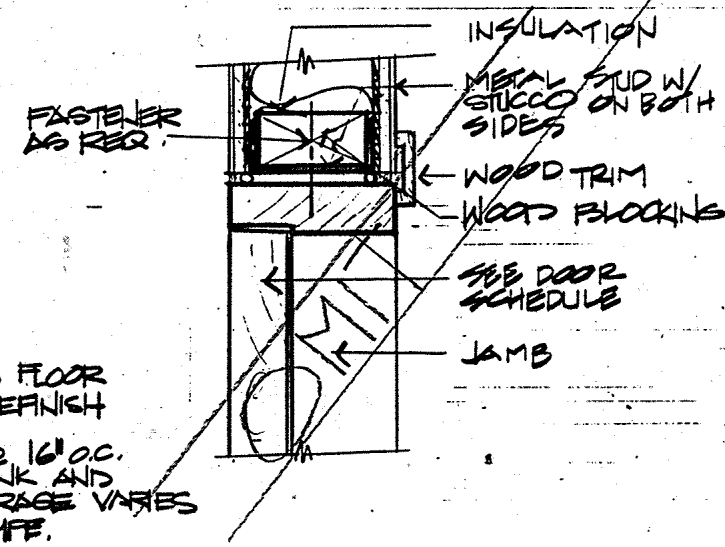 INSULATION
METAL STUD W/
STUCCO ON BOTH
SIDES
FASTENER
AS REQ.
WOOD TRIM
WOOD BLOCKING
SEE DOOR
SCHEDULE
JAMB
FLOOR
EFINISH
16" O.C.
NK AND
RAGE VARIES